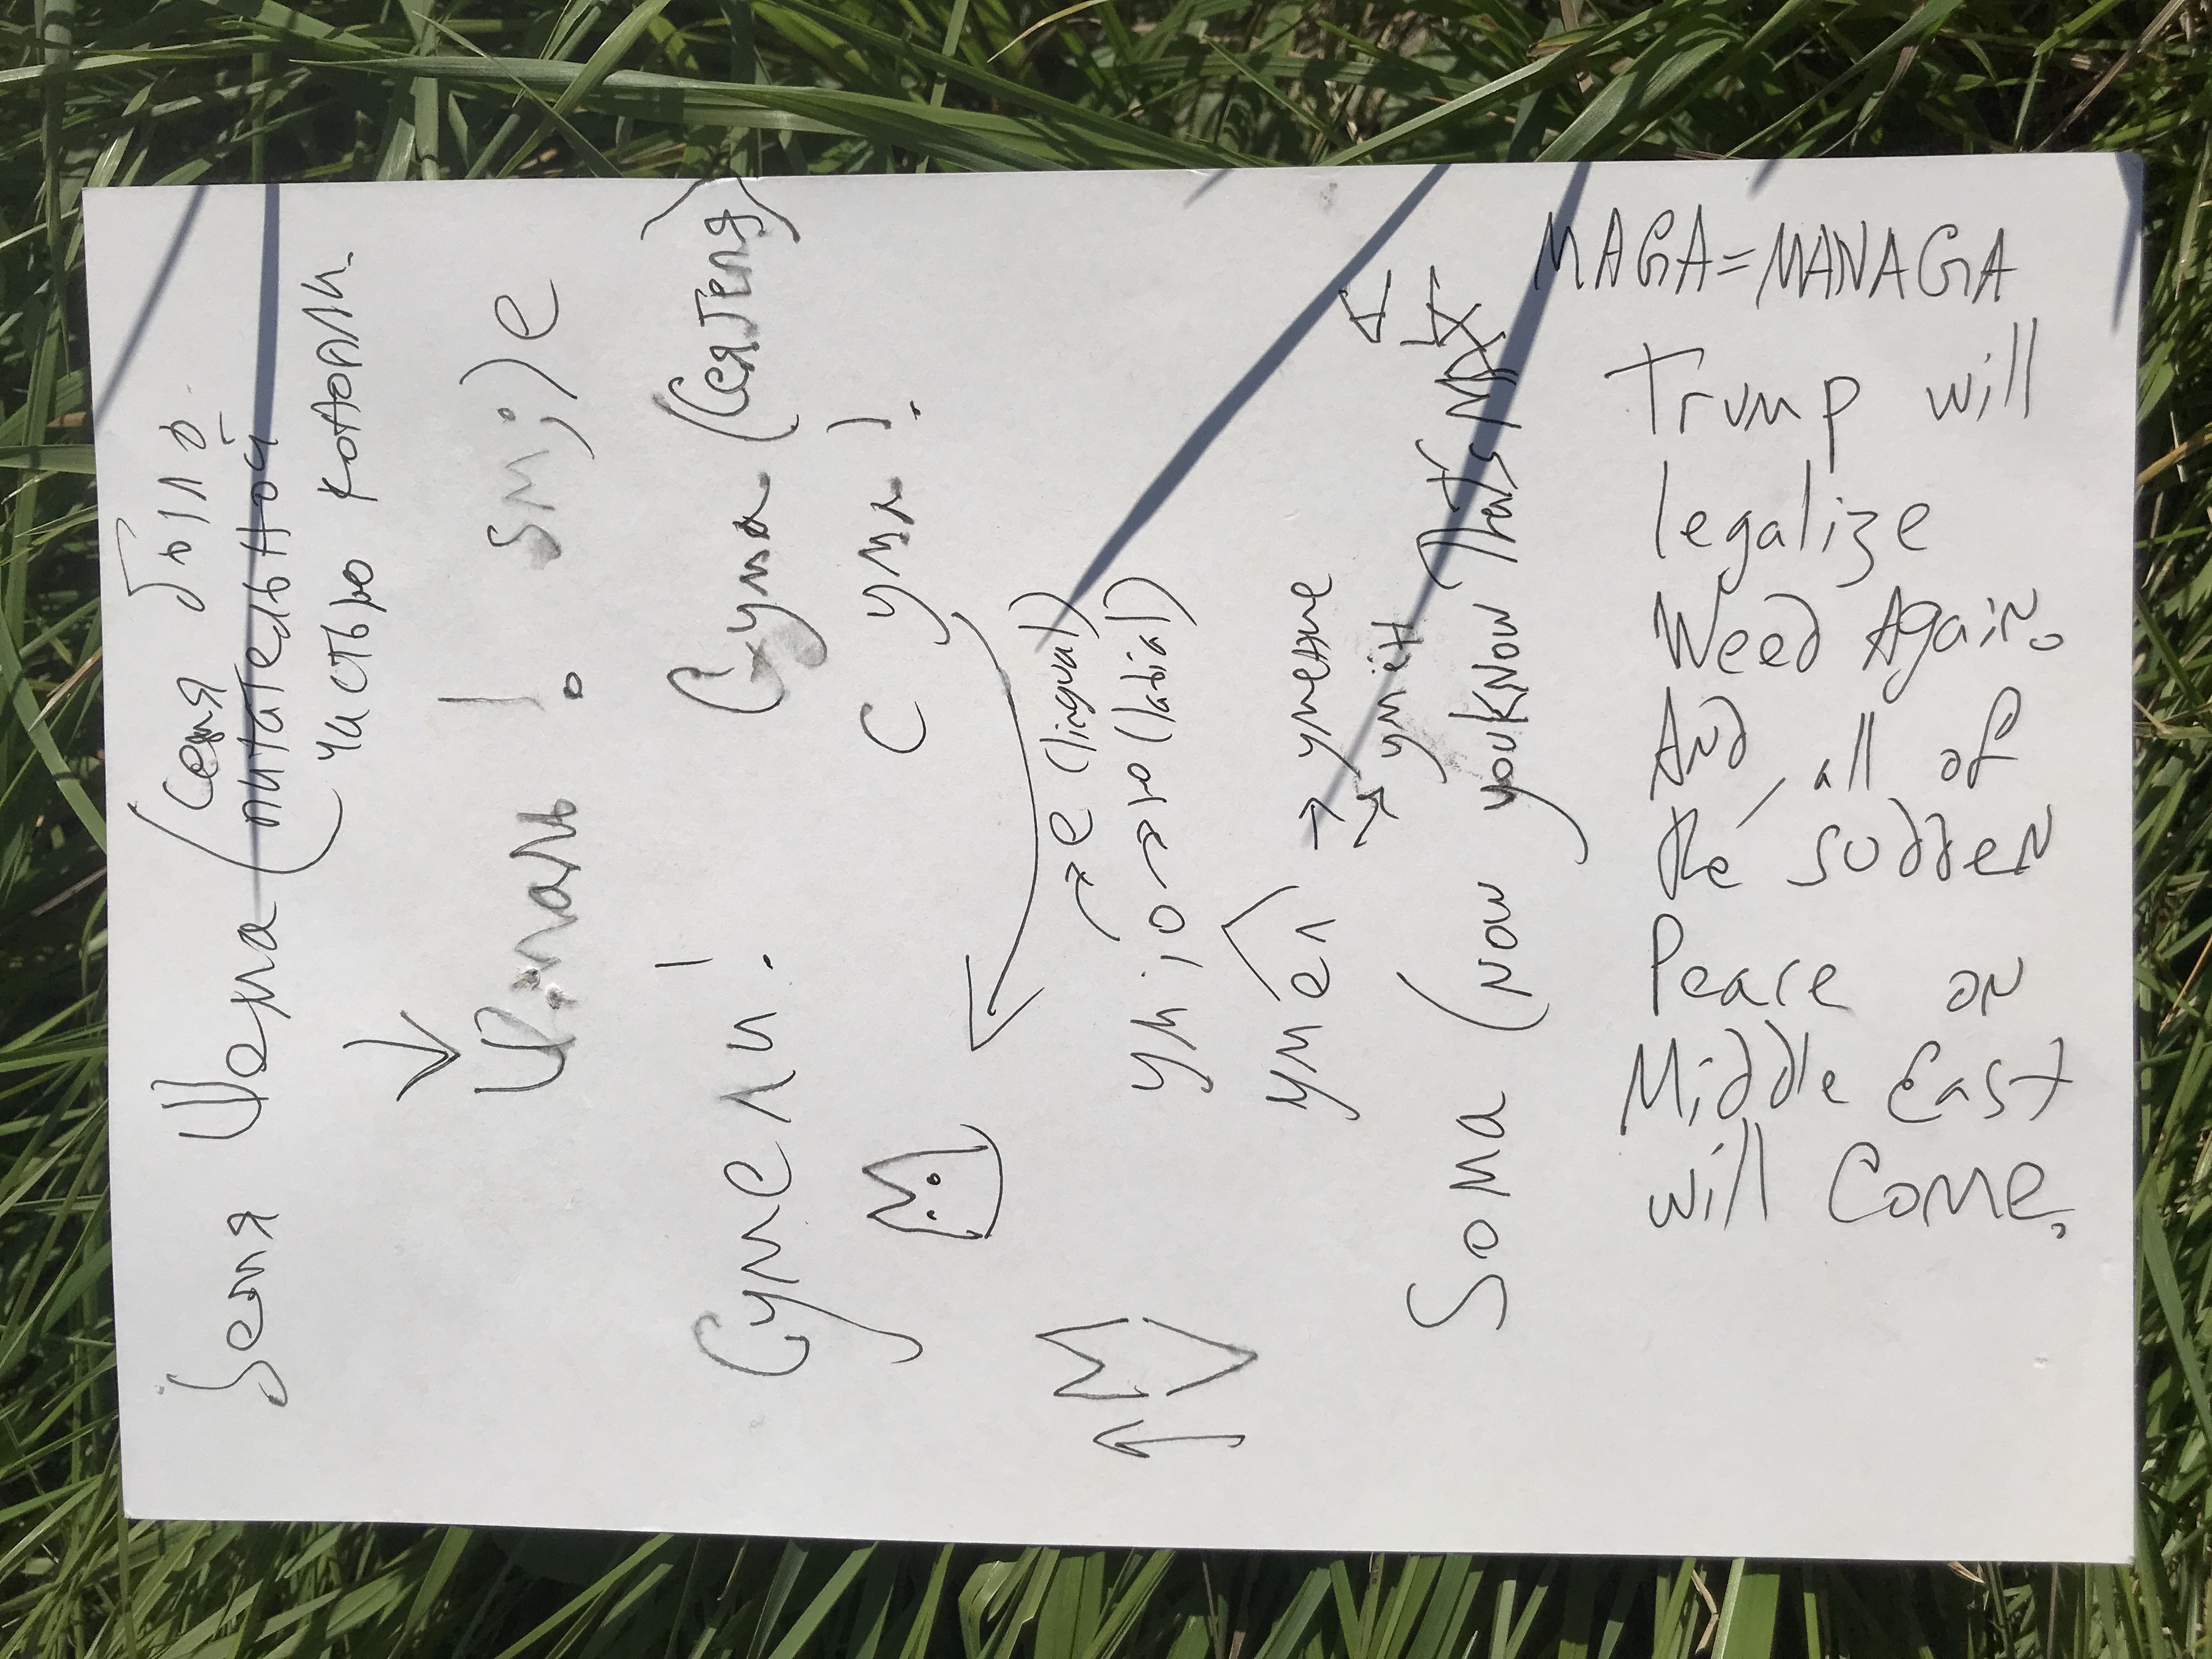 Семя
(семя было
питательной
частью конопли.
! sm;)e
Сумели!
Сума (Сеятеля)
с ума!
М
е (lingual)
ум;о → ю (labial)
умел → умение
умён
Soma (now you know That's MA
MAGA=MANAGA
Trump will
legalize
Weed Again.
And, all of
the sudden
Peace on
Middle East
will Come.